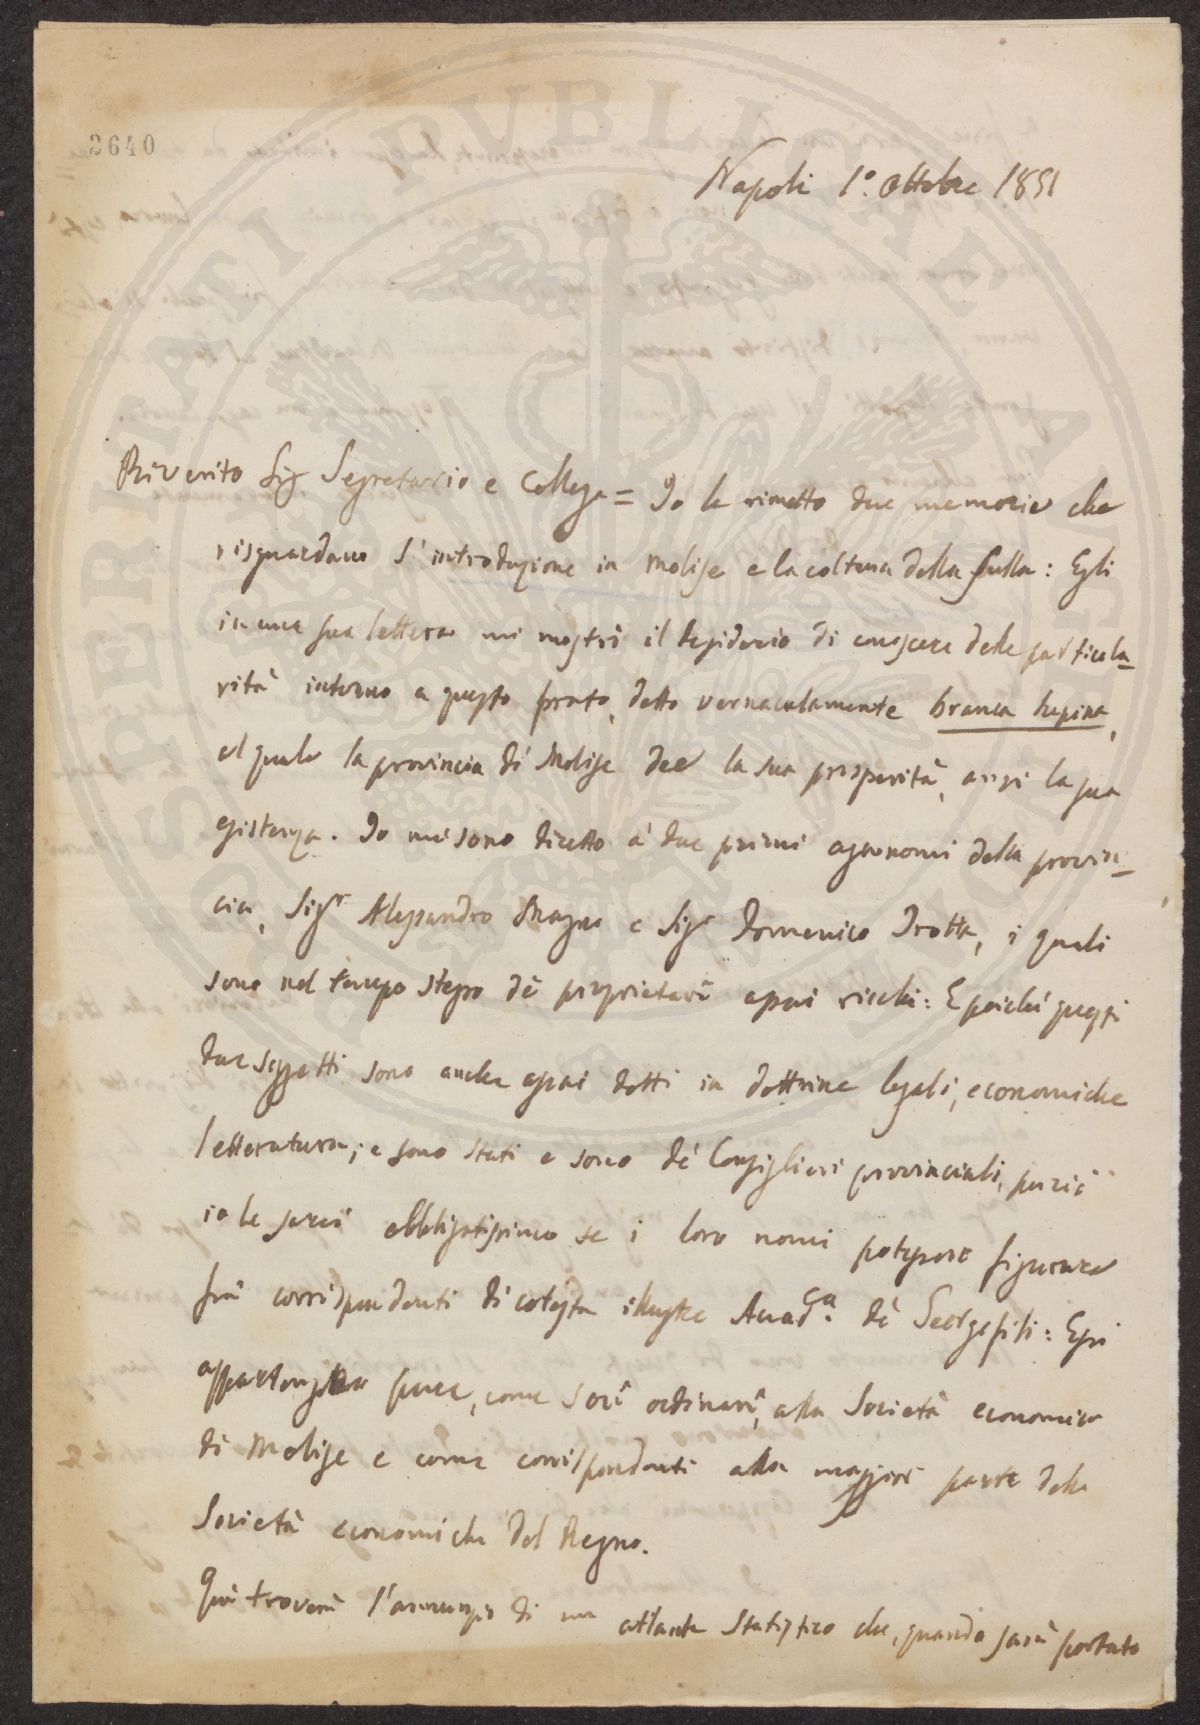 2640
Napoli 1.º Ottobre 1851
Riverito Sig. Segretario e Collega = Io le rimetto due memorie che
risguardano l'introduzione in Molise e la coltura della sulla: Egli
in una sua lettera mi mostrò il desiderio di conoscere delle particola=
rità intorno a questo prato, detto vernacolamente branca
al quale la provincia di Molise dee la sua prosperità, anzi la sua
esistenza. Io mi sono diretto a' due primi agronomi della provin=
cia, Sigr Alessandro Magno e Sigr Domenico Trotta, i quali
sono nel tempo stesso de' proprietarî assai ricchi: E poichè questi
due soggetti sono anche assai dotti in dottrine legali, economiche
letteratura; e sono stati e sono de' Consiglieri provinciali, perciò
io le sarei obbligatissimo se i loro nomi potessero figurare
fra' corrispondenti di cotesta illustre Accad.ca de' Georgofili: Essi
appartengono pure, come socî ordinarî, alla Società economica
di Molise e come corrispondenti alla maggior parte delle
Società economiche del Regno.
Quì troverà l'annunzio di un atlante statistico che, quando sarà portato
SPERITATI PVBLICAE AVGENDAE